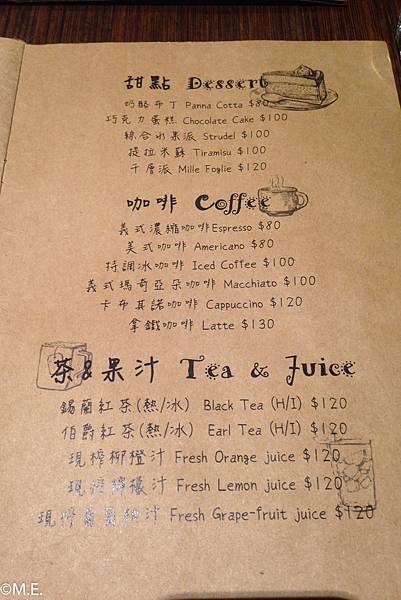 甜點 Dessert
奶酪布丁 Panna Cotta $80
巧克力蛋糕 Chocolate Cake $100
綜合水果派 Strudel $100
提拉米蘇 Tiramisu $100
千層派 Mille Foglie $120
咖啡 Coffee
義式濃縮咖啡Espresso $80
美式咖啡 Americano $80
特調冰咖啡 Iced Coffee $100
義式瑪奇亞朵咖啡 Macchiato $100
卡布其諾咖啡 Cappuccino $120
拿鐵咖啡 Latte $130
茶&果汁 Tea & Juice
錫蘭紅茶(熱/冰) Black Tea (H/I) $120
伯爵紅茶(熱/冰) Earl Tea (H/I) $120
現榨柳橙汁 Fresh Orange juice $120
現榨檸檬汁 Fresh Lemon juice $120
現榨葡萄柚汁 Fresh Grape-fruit juice $120
©M.E.